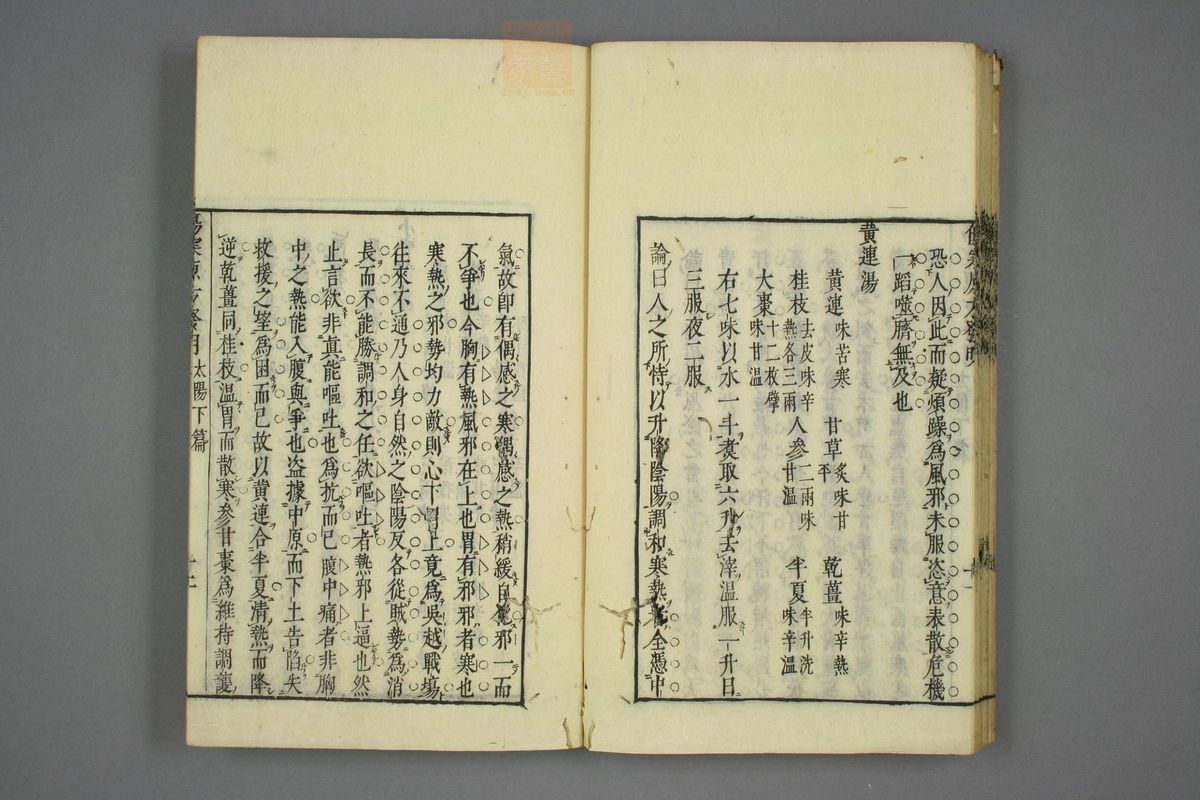 恐人因此而疑煩躁爲風邪未服恣意表散危機
一蹈噬臍無及也
黄連湯
黄連味苦寒 甘草炙味甘平 乾薑味辛熱
桂枝去皮味辛熱各三兩 人參二兩味甘溫 半夏半升洗味辛溫
大棗十二枚擘味甘溫
右七味以水一斗煮取六升去滓溫服一升日
三服夜二服
論曰人之所恃以升降陰陽調和寒熱全憑中
氣故即有偶感之寒偶感之熱稍緩自邪一而
不爭也今胸有熱風邪在上也胃有邪邪者寒也
寒熱之邪勢均力敵則心下胃上竟爲吳越戰場
往來不通乃人身自然之陰陽反各從賊勢爲消
長而不能勝調和之任欲嘔吐者熱邪上逼也然
止言欲非真能嘔吐也爲抗而已腹中痛者非胸
中之熱能入腹與爭也盗據中原而下土告陷失
救援之望爲困而已故以黄連合半夏清熱而降
逆乾薑同桂枝溫胃而散寒參甘棗爲維持調護
太陽下篇